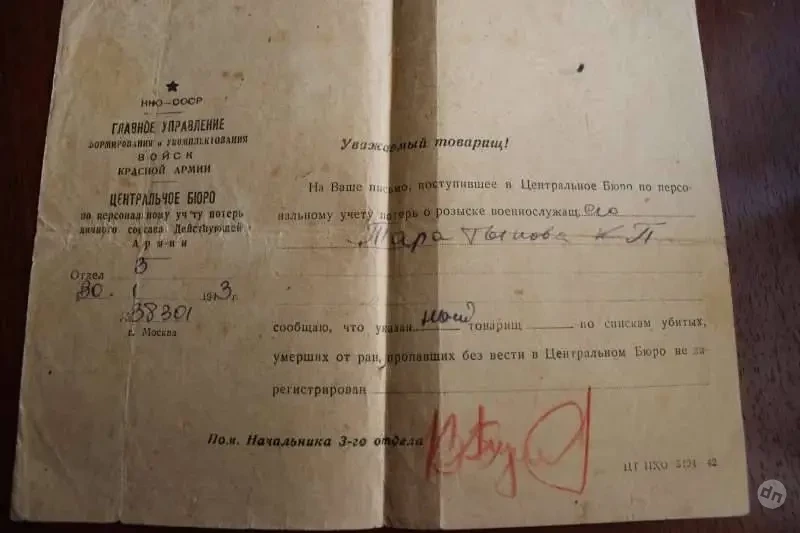 НКО-СССР
ГЛАВНОЕ УПРАВЛЕНИЕ
ФОРМИРОВАНИЯ и УКОМПЛЕКТОВАНИЯ
ВОЙСК
КРАСНОЙ АРМИИ
ЦЕНТРАЛЬНОЕ БЮРО
по персональному учету потерь
личного состава Действующей
Армии
Отдел 3
30. 1 1943 г.
№ 38301
г. Москва
Уважаемый товарищ!
На Ваше письмо, поступившее в Центральное Бюро по персо-
нальному учету потерь о розыске военнослужащ его
К П
сообщаю, что указан ный товарищ по спискам убитых,
умерших от ран, пропавших без вести в Центральном Бюро не за-
регистрирован
Пом. Начальника 3-го отдела
dn